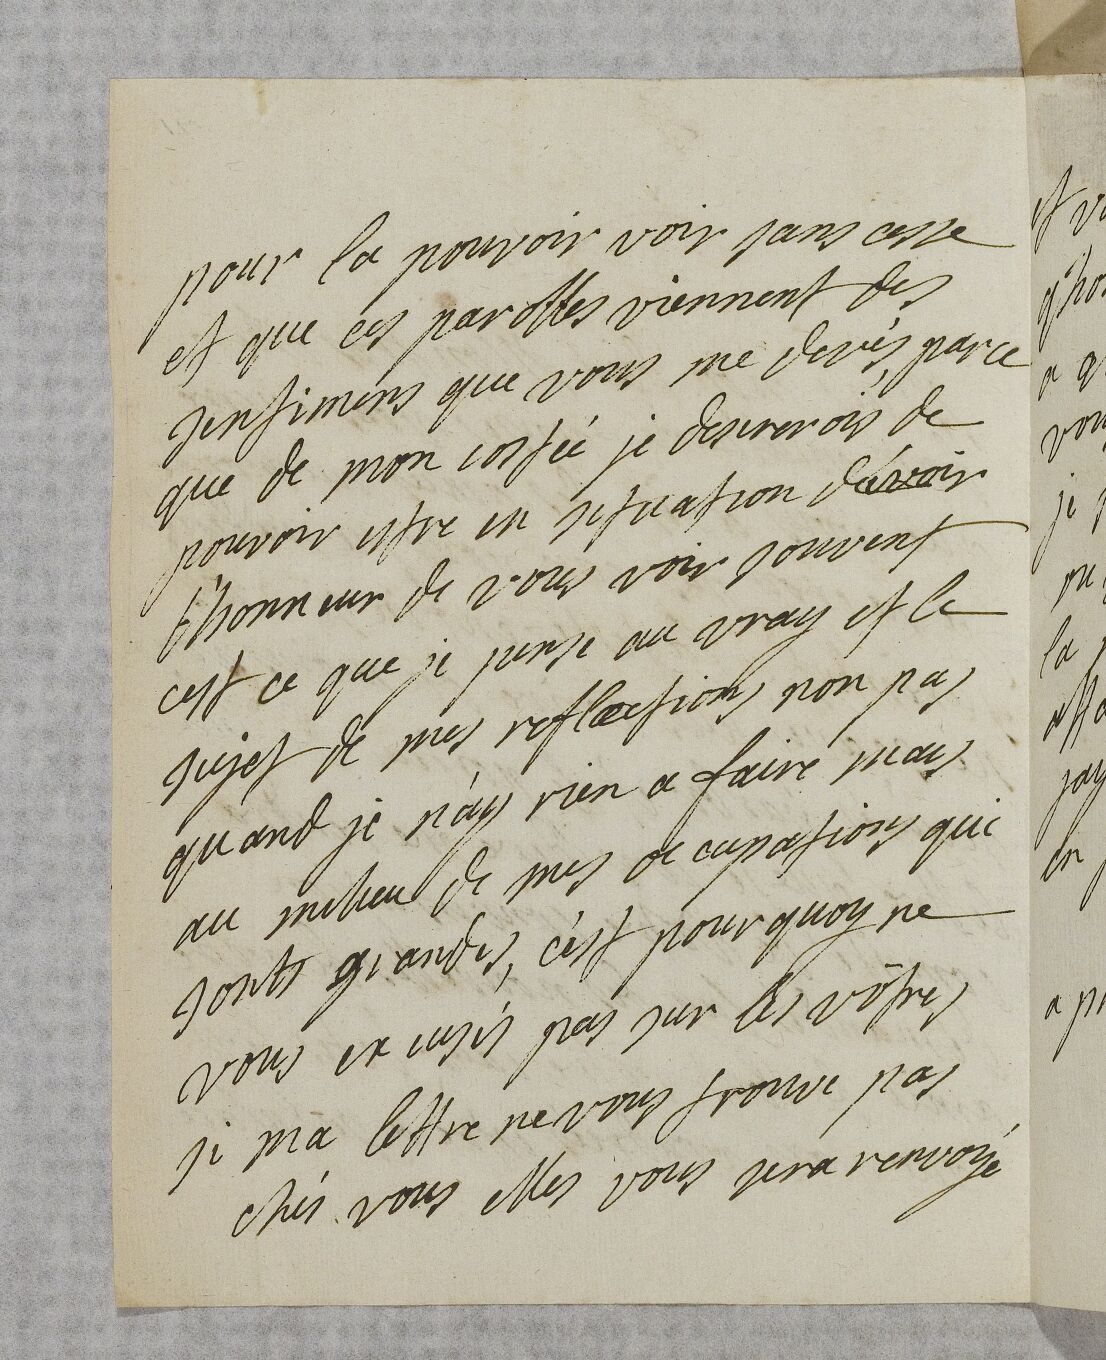 pour la pouvoir voir sans cesse
et que ces parolles viennent des
sentimens que vous me devés, parce
que de mon costéé je desirerois de
pouvoir estre en situation davoir
l'honneur de vous voir souvent
cest ce que je pense au vray et le
sujet de mes reflections non pas
quand je n'ay rien a faire mais
au milieu de mes occupations qui
sonts grandes, c'est pourquoy ne
vous excusés pas sur les vôtres
si ma lettre ne vous trouve pas
chés vous elles vous sera renvoyé
et
a
je
la
en
a